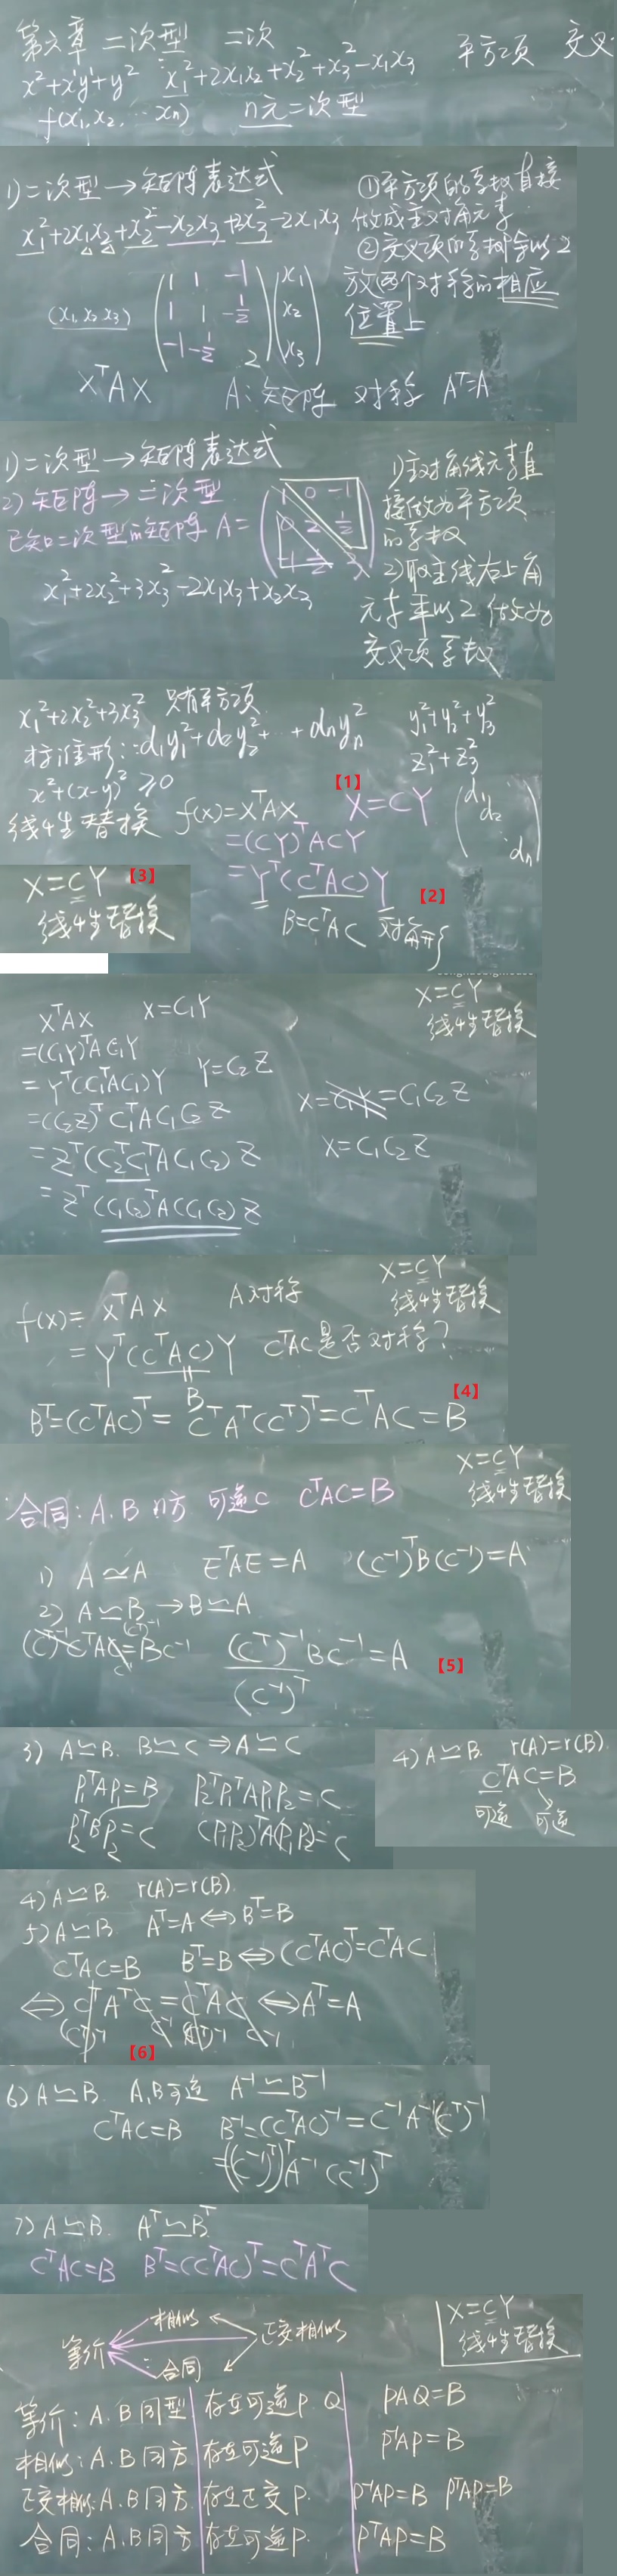 第六章 二次型 二次
x²+xy+y² x₁²+2x₁x₂+x₂²+x₃²-x₁x₃ 平方项 交叉
f(x₁,x₂,…xn) n元二次型
1)二次型→矩阵表达式
x₁²+2x₁x₂+x₂²-x₂x₃+2x₃²-2x₁x₃
(x₁ x₂ x₃) (1 1 -1) (x₁)
1 1 -1/2 x₂
-1 -1/2 2 x₃
XᵀAX A:矩阵 对称 Aᵀ=A
①平方项的系数直接
做成主对角元素
②交叉项的系数除以2
放两个对称的相应
位置上
1)二次型→矩阵表达式
2)矩阵→二次型
已知二次型的矩阵A=
1 0 -1
0 2 1/2
-1 1/2 3
x₁²+2x₂²+3x₃²-2x₁x₃+x₂x₃
1)主对角线元素直
接做为平方项
的系数
2)取主线右上角
元素乘以2做为
交叉项系数
x₁²+2x₂²+3x₃² 只有平方项
标准形:d₁y₁²+d₂y₂²+…+dnyn²
y₁²+y₂²+y₃²
z₁²+z₃²
x²+(x-y)²≥0
【1】
线性替换 f(x)=XᵀAX X=CY
=(CY)ᵀACY
=Yᵀ(CᵀAC)Y
【2】
B=CᵀAC 对角形
d₁
d₂
dn
X=CY 【3】
线性替换
XᵀAX X=C₁Y
=(C₁Y)ᵀAC₁Y
=Yᵀ(C₁ᵀAC₁)Y Y=C₂Z
=(C₂Z)ᵀC₁ᵀAC₁C₂Z
=Zᵀ(C₂ᵀC₁ᵀAC₁C₂)Z
=Zᵀ(C₁C₂)ᵀA(C₁C₂)Z
X=CY
线性替换
X=C₁Y=C₁C₂Z
X=C₁C₂Z
f(x)=XᵀAX A对称
X=CY
线性替换
=Yᵀ(CᵀAC)Y CᵀAC是否对称?
B
【4】
Bᵀ=(CᵀAC)ᵀ=CᵀAᵀ(Cᵀ)ᵀ=CᵀAC=B
X=CY
线性替换
合同:A.B n方 可逆C CᵀAC=B
1) A≃A EᵀAE=A (C⁻¹)ᵀB(C⁻¹)=A
2) A≃B→B≃A
(Cᵀ)⁻¹CᵀAC=BC⁻¹ (Cᵀ)⁻¹BC⁻¹=A
(Cᵀ)⁻¹
C⁻¹
【5】
(C⁻¹)ᵀ
3) A≃B. B≃C⇒A≃C
P₁ᵀAP₁=B P₂ᵀP₁ᵀAP₁P₂=C
P₂ᵀBP₂=C (P₁P₂)ᵀA(P₁P₂)=C
4)A≃B. r(A)=r(B).
CᵀAC=B
可逆 可逆
4)A≃B. r(A)=r(B).
5)A≃B. Aᵀ=A⇔Bᵀ=B
CᵀAC=B Bᵀ=B⇔(CᵀAC)ᵀ=CᵀAC
⇔CᵀAᵀC=CᵀAC⇔Aᵀ=A
(Cᵀ)⁻¹ C⁻¹ (Cᵀ)⁻¹ C⁻¹
【6】
6)A≃B. A,B可逆 A⁻¹≃B⁻¹
CᵀAC=B B⁻¹=(CᵀAC)⁻¹=C⁻¹A⁻¹(Cᵀ)⁻¹
=((C⁻¹)ᵀ)ᵀA⁻¹(C⁻¹)ᵀ
7)A≃B. Aᵀ≃Bᵀ
CᵀAC=B Bᵀ=(CᵀAC)ᵀ=CᵀAᵀC
相似
等价 正交相似
合同
X=CY
线性替换
等价:A.B同型 存在可逆P.Q PAQ=B
相似:A.B同方 存在可逆P P⁻¹AP=B
正交相似:A.B同方 存在正交P. P⁻¹AP=B PᵀAP=B
合同:A.B同方 存在可逆P. PᵀAP=B